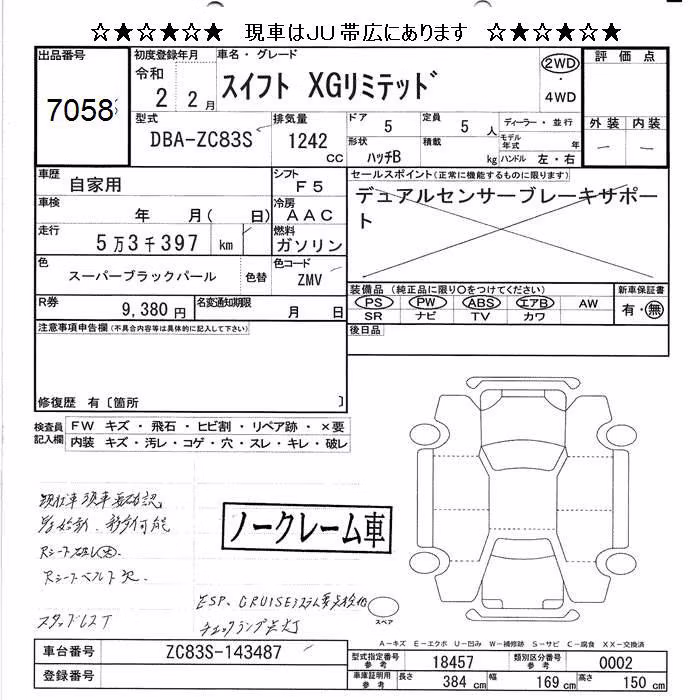 ☆★☆★☆★ 現車はJU帯広にあります ☆★☆★☆★
出品番号
7058
初度登録年月
令和
2 2月
車名・グレード
スイフト XGリミテッド
2WD
・
4WD
評価点
外装 内装
－ －
型式
DBA-ZC83S
排気量
1242
cc
ドア
5
定員
5 人
ディーラー・並行
形状
ハッチB
積載
kg
モデル年式
年
ハンドル 左・右
車歴
自家用
シフト
F5
車検
年 月( 日)
冷房
AAC
走行
5万3千397 km
燃料
ガソリン
色
スーパーブラックパール
色替
色コード
ZMV
R券
9,380円
名変通知期限
月 日
セールスポイント(正常に機能するものに限ります)
デュアルセンサーブレーキサポー
ト
装備品 (純正品に限り〇をつけてください)
PS PW ABS エアB AW
SR ナビ TV カワ
新車保証書
有・無
後日品
注意事項申告欄(不具合内容等は具体的に記入して下さい)
修復歴 有〔箇所 〕
検査員
記入欄
FW キズ・飛石・ヒビ割・リペア跡・×要
内装 キズ・汚レ・コゲ・穴・スレ・キレ・破レ
現状車 現車要確認
Rシート破レ大.
Rシートベルト欠.
スタッドレスT
ノークレーム車
ESP、CRUISEシステム要点検他
チェックランプ点灯
スペア
A－キズ E－エクボ U－凹み W－補修跡 S－サビ C－腐食 XX－交換済
車台番号
ZC83S-143487
登録番号
型式指定番号
参考
18457
類別区分番号
参考
0002
車庫証明用
参考
長さ
384 cm
幅
169 cm
高さ
150 cm